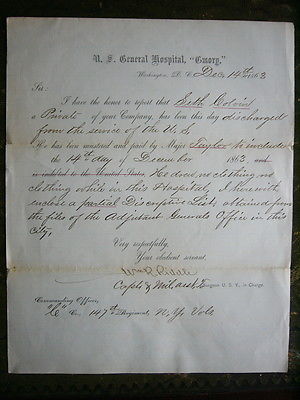 U. S. General Hospital, "Emory,"
Washington, D. C. Dec 14th 1863
Sir:
I have the honor to report that Seth Colvin
a Private of your Company, has been this day discharged
from the service of the U.S.
He has been mustered and paid by Major Taylor to include
the 14th day of December 1863. and
is indebted to the United States He does no clothing no
clothing while in this Hospital, I herewith
enclose a partial Discriptive List, obtained from
the files of the Adjutant Generals Office in this
City.
Very respectfully,
Your obedient servant,
Capt & Mil. asst Surgeon U. S. V., in Charge.
Commanding Officer,
Co. 147th Regiment, N.Y. Vols